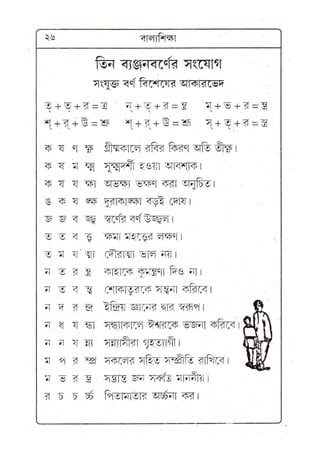 ২৬ বাল্যশিক্ষা
তিন ব্যঞ্জনবর্ণের সংযোগ
সংযুক্ত বর্ণ বিশেষের আকারভেদ
ত্ + ত্ + র = ত্ৰ ন্ + ত্ + র = ন্ত্র ম্ + ভ + র = ম্ভ্র
শ্ + র্ + উ = শ্রু শ্ + র্ + ঊ = শ্রূ স্ + ত্ + র = স্ত্র
ক ষ ণ ক্ষ্ণ গ্রীষ্মকালে রবির কিরণ অতি তীক্ষ্ণ।
ক ষ ম ক্ষ্ম সূক্ষ্মদর্শী হওয়া আবশ্যক।
ক ষ য ক্ষ্য অভক্ষ্য ভক্ষণ করা অনুচিত।
ঙ ক ষ ঙ্ক্ষ দুরাকাঙ্ক্ষা বড়ই দোষ।
জ জ ব জ্জ্ব স্বর্ণের বর্ণ উজ্জ্বল।
ত ত ব ত্ত্ব ক্ষমা মহত্ত্বের লক্ষণ।
ত ম য ত্ম্য দৌরাত্ম্য ভাল নয়।
ন ত র ন্ত্র কাহাকে কুমন্ত্রণা দিও না।
ন ত ব ন্ত্ব শোকাতুরকে সান্ত্বনা করিবে।
ন দ র ন্দ্র ইন্দ্রিয় জ্ঞানের দ্বার স্বরূপ।
ন ধ য ন্ধ্য সন্ধ্যাকালে ঈশ্বরকে ভজনা করিবে।
ন ন য ন্ন্য সন্ন্যাসীরা গৃহত্যাগী।
ম প র ম্প্র সকলের সহিত সম্প্রীতি রাখিবে।
ম ভ র ম্ভ্র সম্ভ্রান্ত জন সর্ব্বত্র মাননীয়।
র চ চ র্চ্চ পিতামাতার অর্চ্চনা কর।